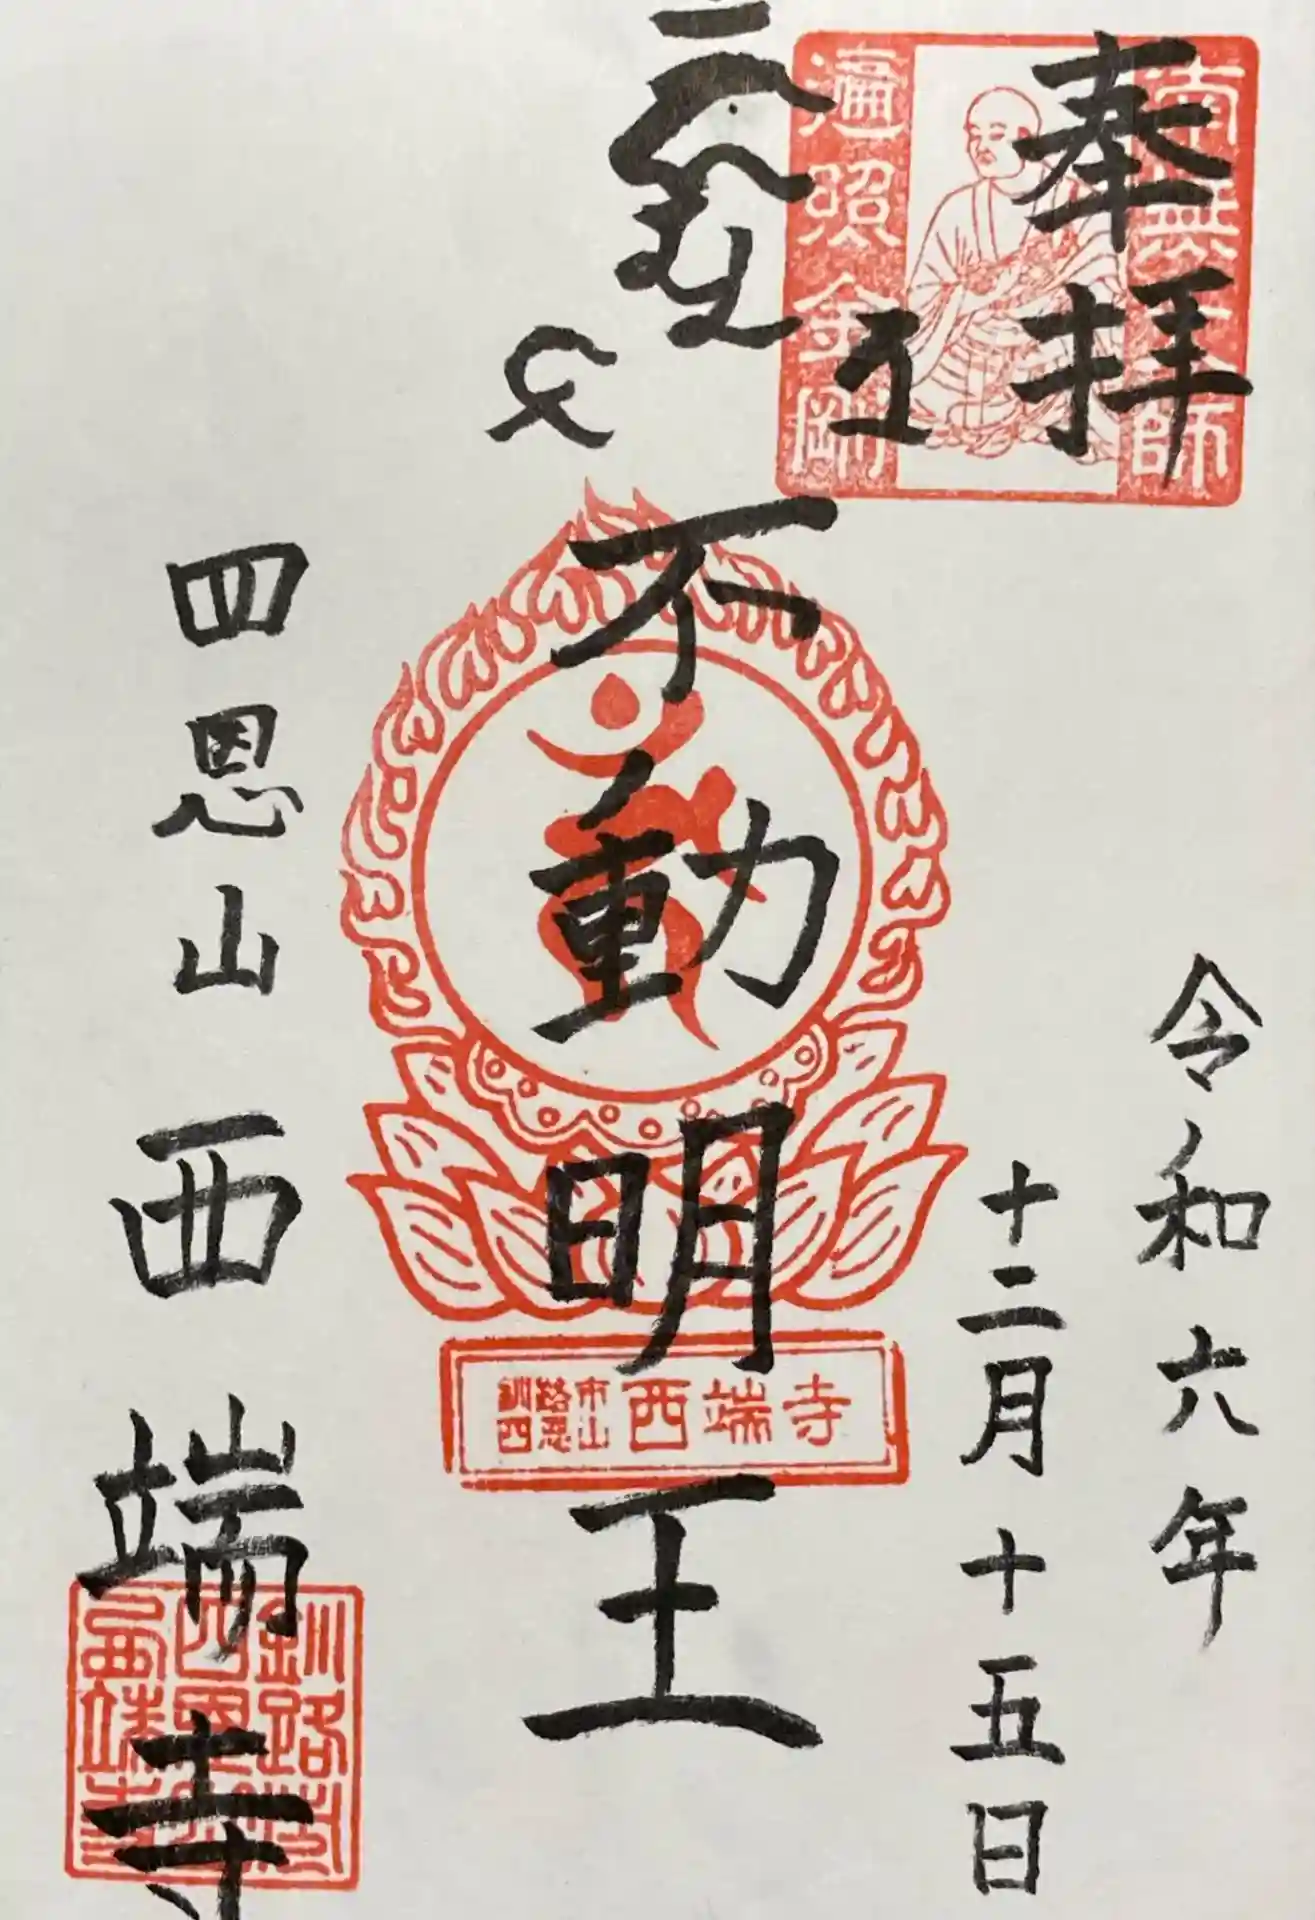 奉拝
令和六年
十二月十五日
南無大師
遍照金剛
不動明王
釧路市
四恩山
西端寺
四恩山西端寺
釧路市
四恩山
西端寺